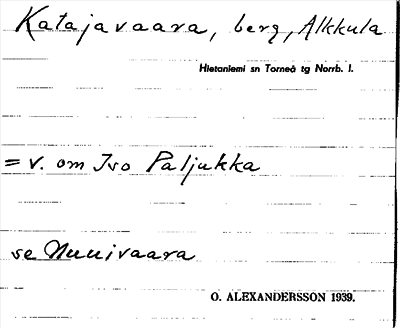 Katajavaara, berg, Alkkula
Hietaniemi sn Torneå tg Norrb. l.
= v. om Iso Paljukka
se Nuuivaara
O. ALEXANDERSSON 1939.